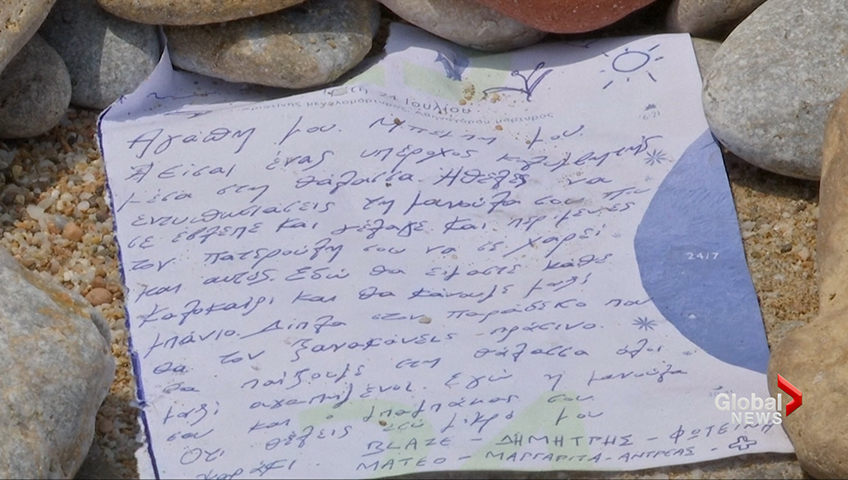 24 Ιουλίου
Αγάπη μου. Μπέμπη μου.
Είσαι ένας υπέροχος κολυμβητής
μέσα στη θάλασσα. Ήθελες να
εντυπωσιάσεις τη μανούλα σου που
σε έβλεπε και γέλαγε. Και περίμενες
τον πατερούλη σου να σε χαρεί
και αυτός. Εδώ θα είμαστε κάθε
καλοκαίρι και θα κάνουμε μαζί
μπάνιο. Δίπλα στον παράδεισο που
θα τον ξανακάνεις πράσινο.
θα παίζουμε στη θάλασσα όλοι
μαζί αγαπημένοι. Εγώ η μανούλα
σου και ο μπαμπάκας σου.
Ότι θέλεις εσύ μικρό μου
BLAZE - ΔΗΜΗΤΡΗΣ - ΦΩΤΕΙΝΗ
ΜΑΤΕΟ - ΜΑΡΓΑΡΙΤΑ - ΑΝΤΡΕΑΣ -
24/7
Global
NEWS